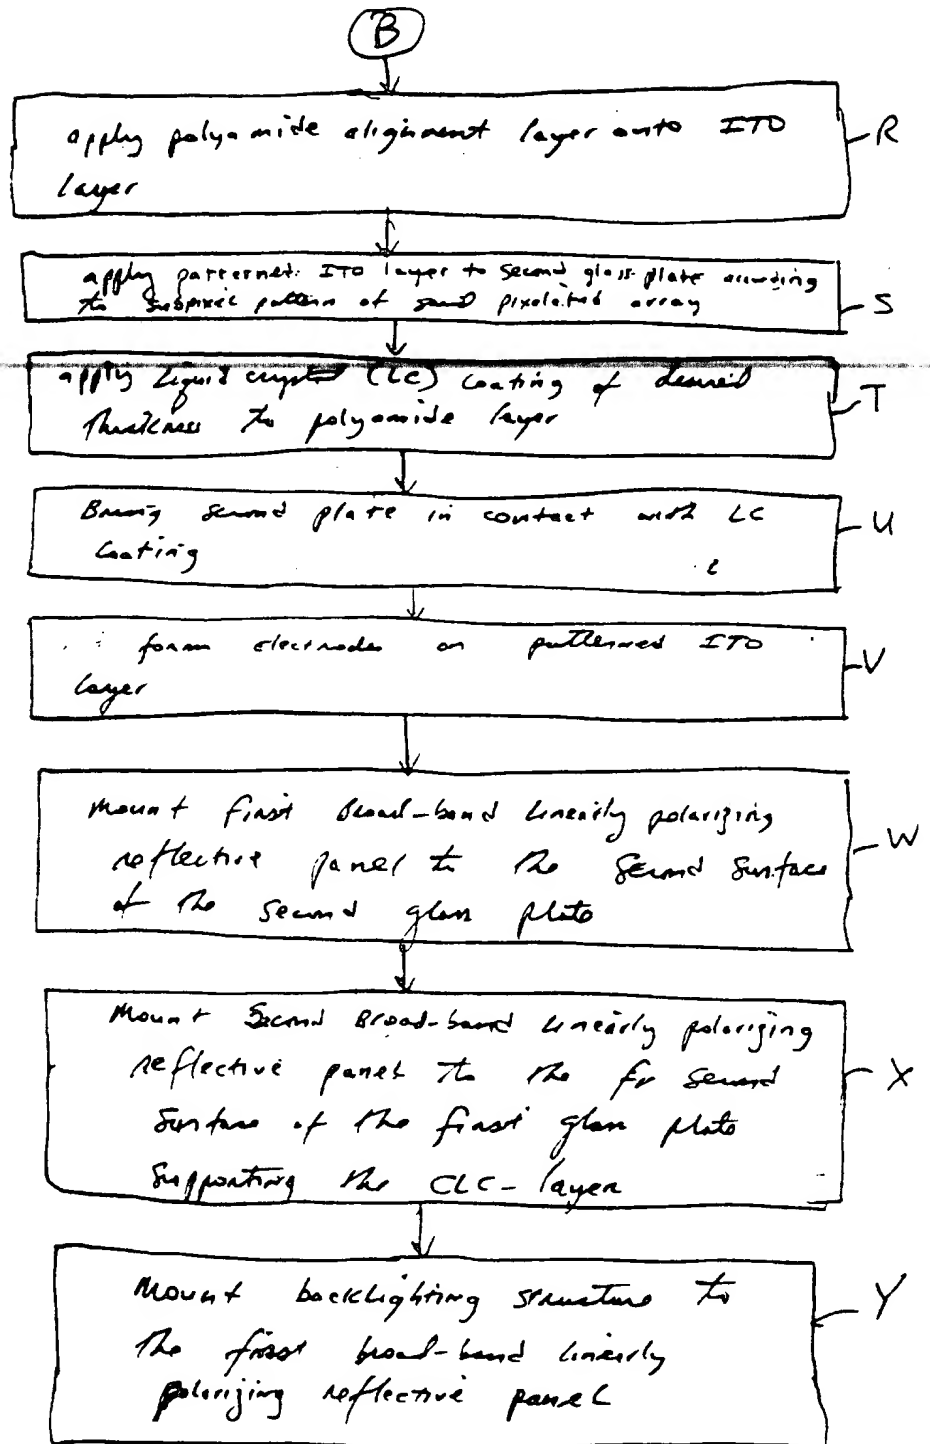 B
apply polyamide alignment layer onto ITO
layer
R
apply patterned ITO layer to second glass plate according
to subpixel pattern of pixelated array
S
apply Liquid crystal (LC) coating of desired
thickness to polyamide layer
T
Bring second plate in contact with LC
Coating
U
form electrodes on patterned ITO
layer
V
Mount first Broad-band linearly polarizing
reflective panel to the second surface
of the second glass plate
W
Mount Second Broad-band linearly polarizing
reflective panel to the fr second
surface of the first glass plate
Supporting the CLC-layer
X
Mount backlighting structure to
the first broad-band linearly
polarizing reflective panel
Y